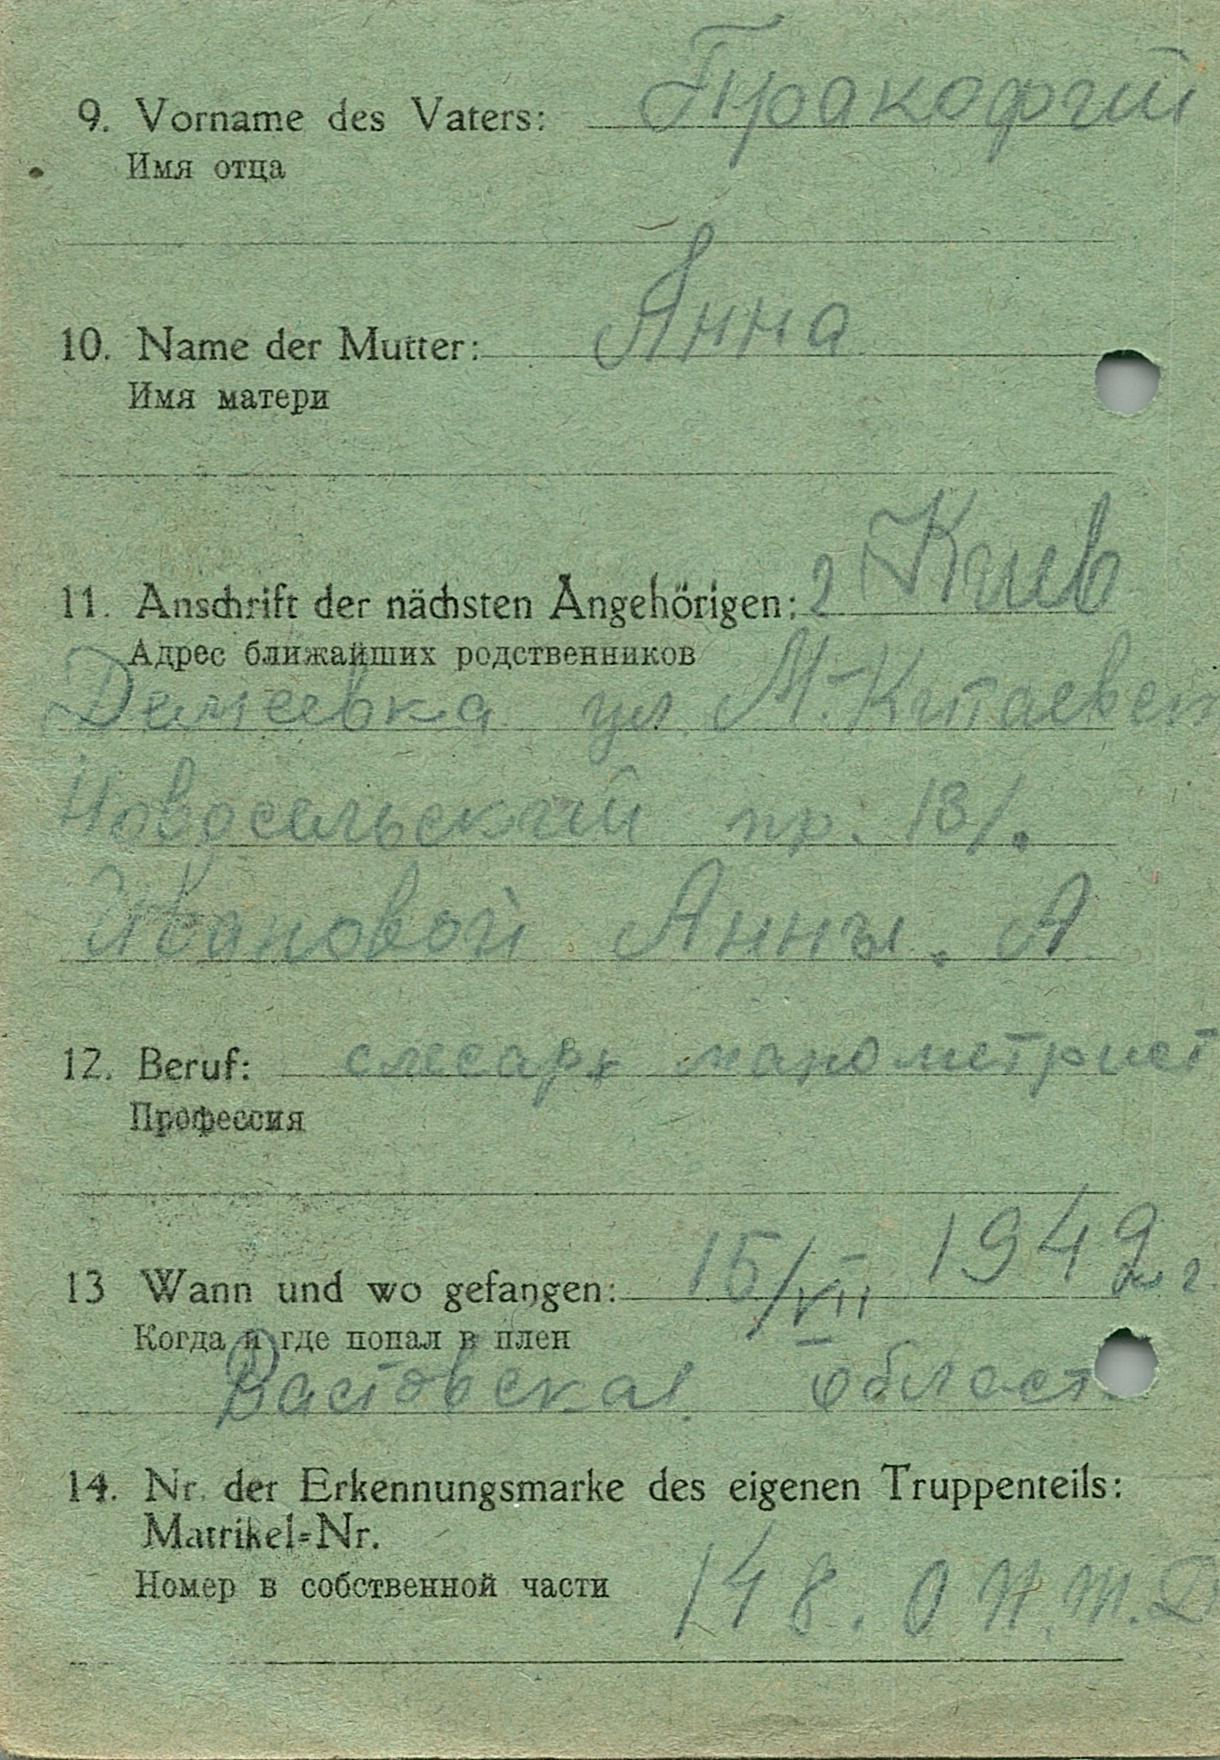 9. Vorname des Vaters: Пракофий
Имя отца
10. Name der Mutter: Анна
Имя матери
11. Anschrift der nächsten Angehörigen: г Киів
Адрес ближайших родственников
Демеевка ул М-Китаевск
Новосельский пр. 13/.
Ивановой Анны. А
12. Beruf: слесарь манометрист
Профессия
13 Wann und wo gefangen: 15/VII 1942 г
Когда и где попал в плен
Растовская област
14. Nr. der Erkennungsmarke des eigenen Truppenteils:
Matrikel-Nr.
Номер в собственной части 148. О П.Т.Д